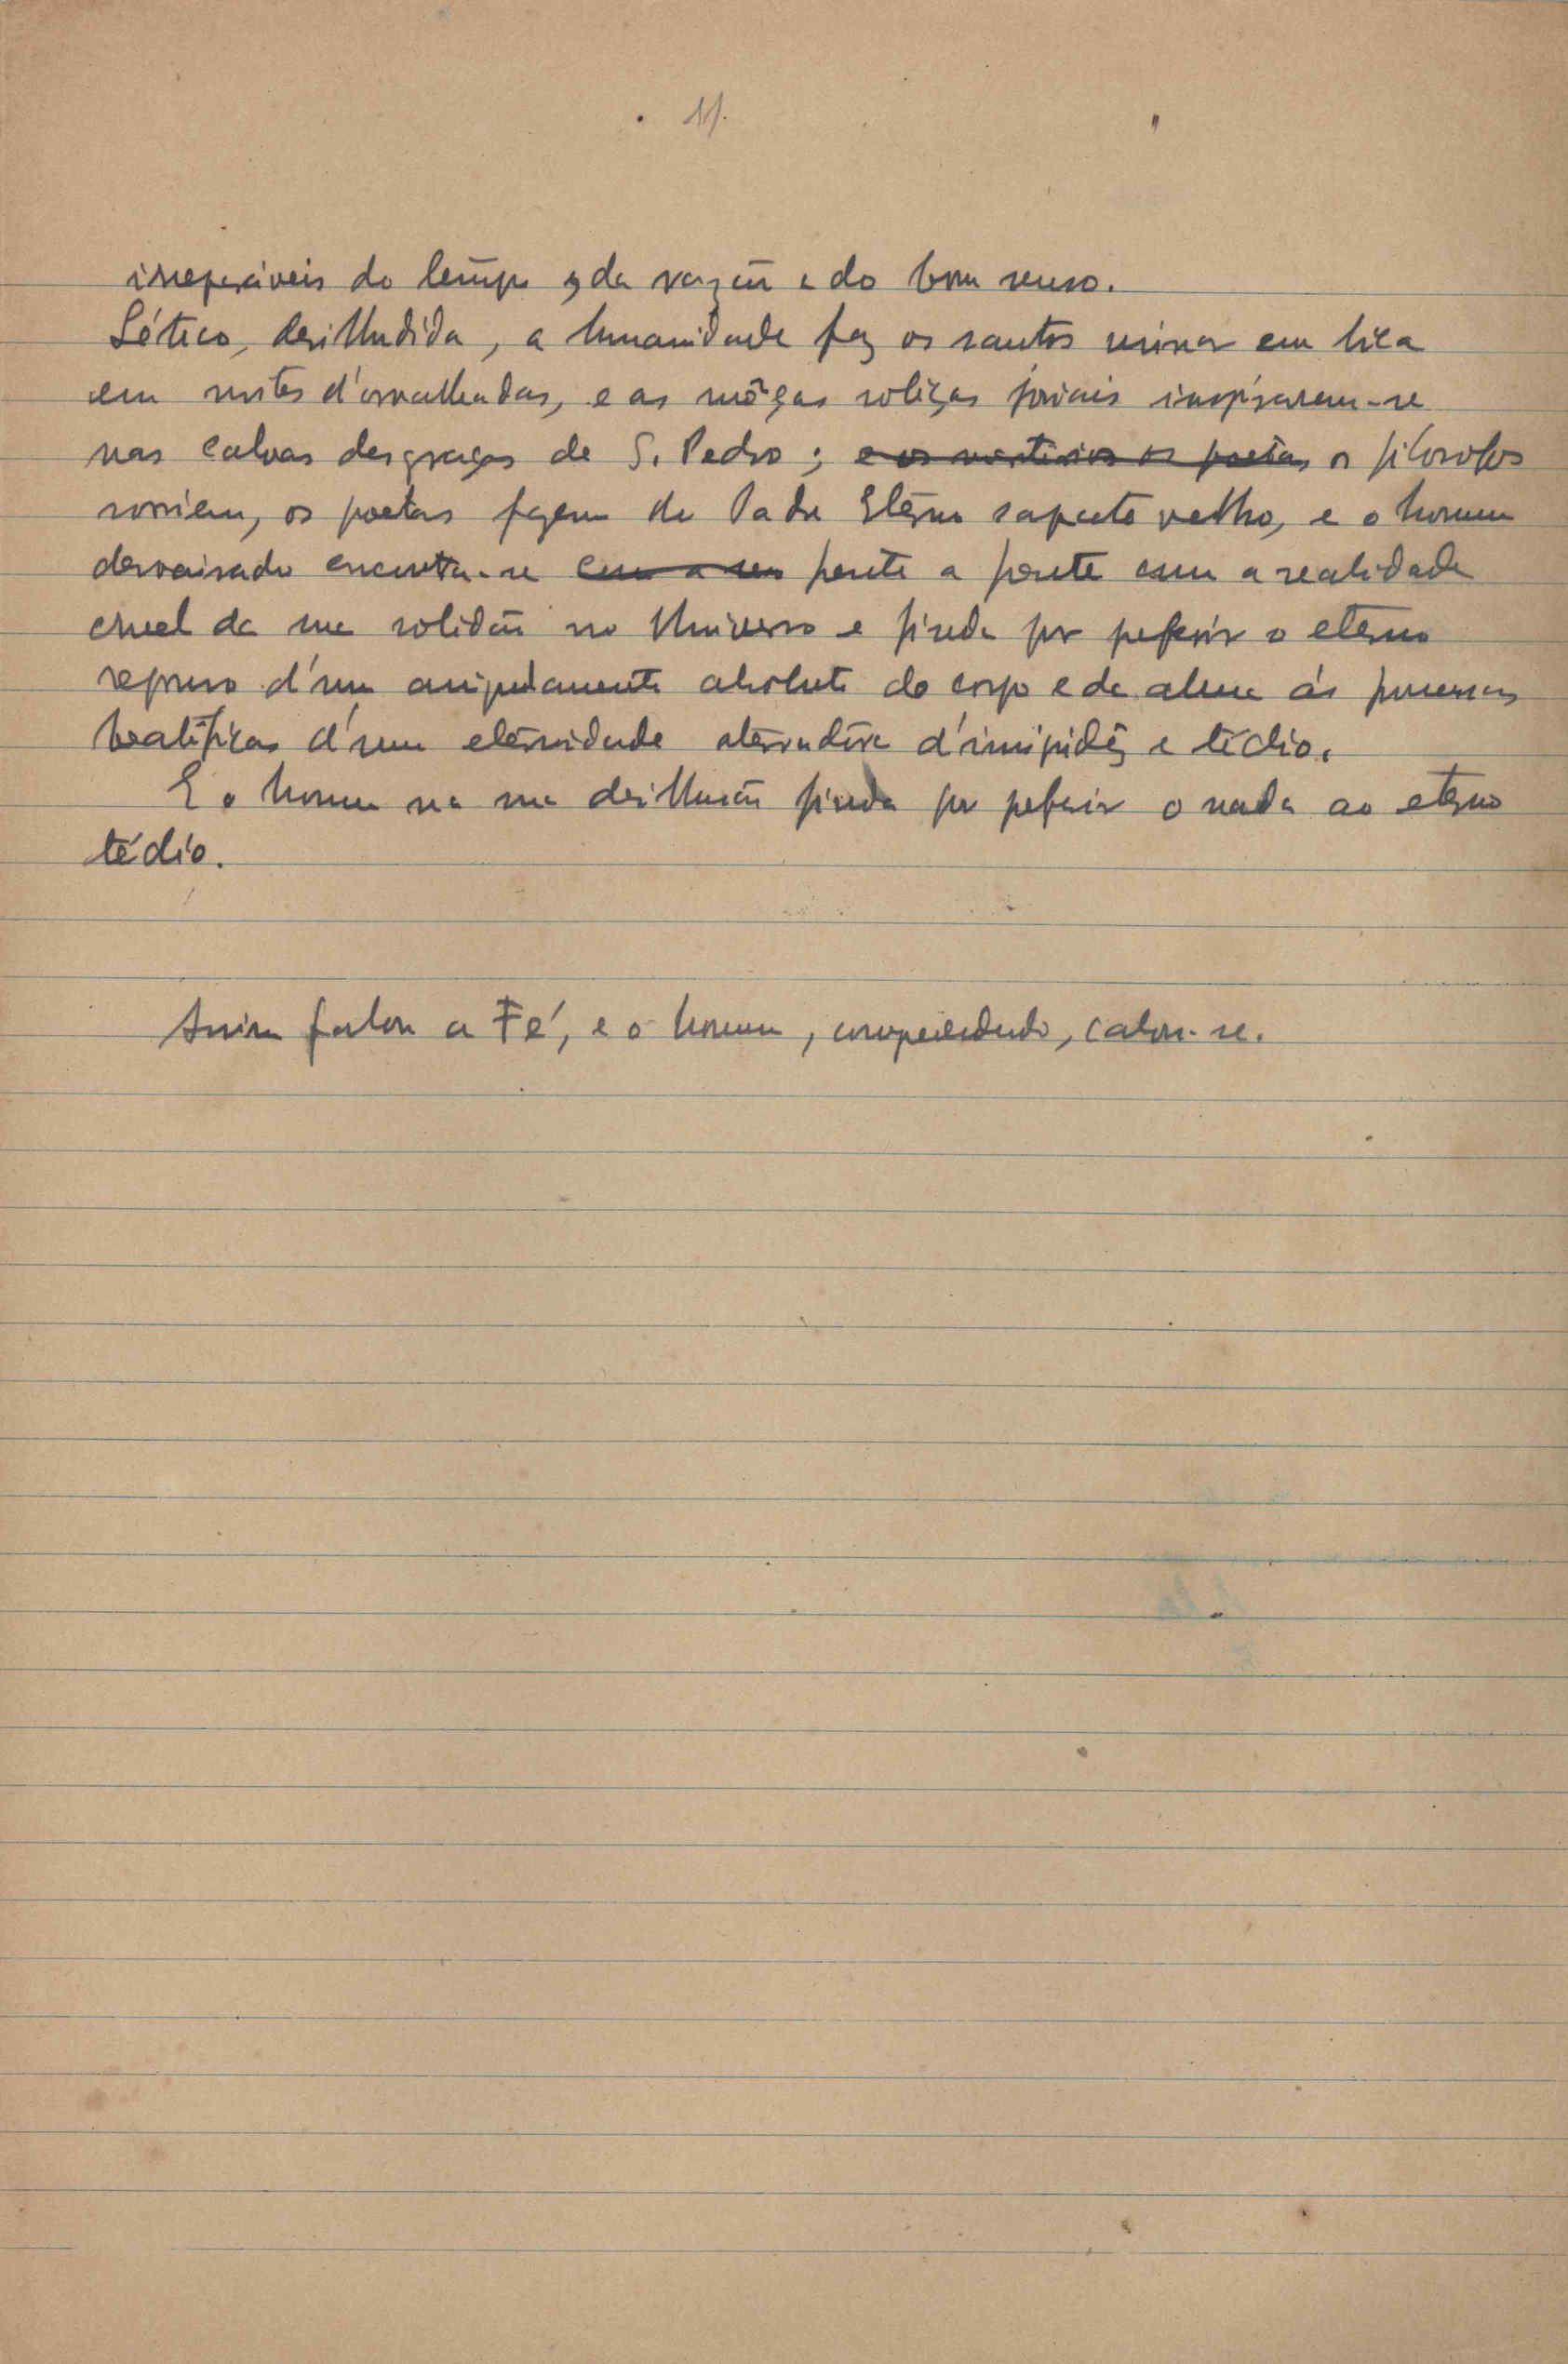 11.
irreparáveis do tempo, da razão e do bom senso.
Sético, desilludida, a humanidade faz os santos urinar em bica
em noites d'orvalhadas, e as môças roliças joviais inspirarem-se
nas calvas desgraças de S. Pedro; e os os poetas os filosofos
sorriem, os poetas fazem do Padre Etérno sapato velho, e o homem
desvairado encontra-se com a seu frente a frente com a realidade
cruel da sua solidão no Universo e finda por preferir o eterno
repouso d'um aniquilamento absoluto do corpo e da alma ás promessas
beatíficas d'uma etérnidade aterradôra d'insipidês e tédio.
E o homem na sua desillusão finda por preferir o nada ao eterno
tédio.
Assim falou a Fé, e o homem, comprehendendo, calou-se.